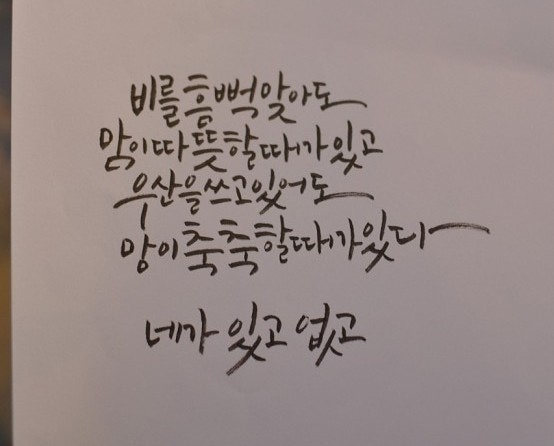 비를 흠뻑 맞아도
맘이 따뜻할 때가 있고
우산을 쓰고 있어도
맘이 축축할 때가 있다
네가 있고 없고